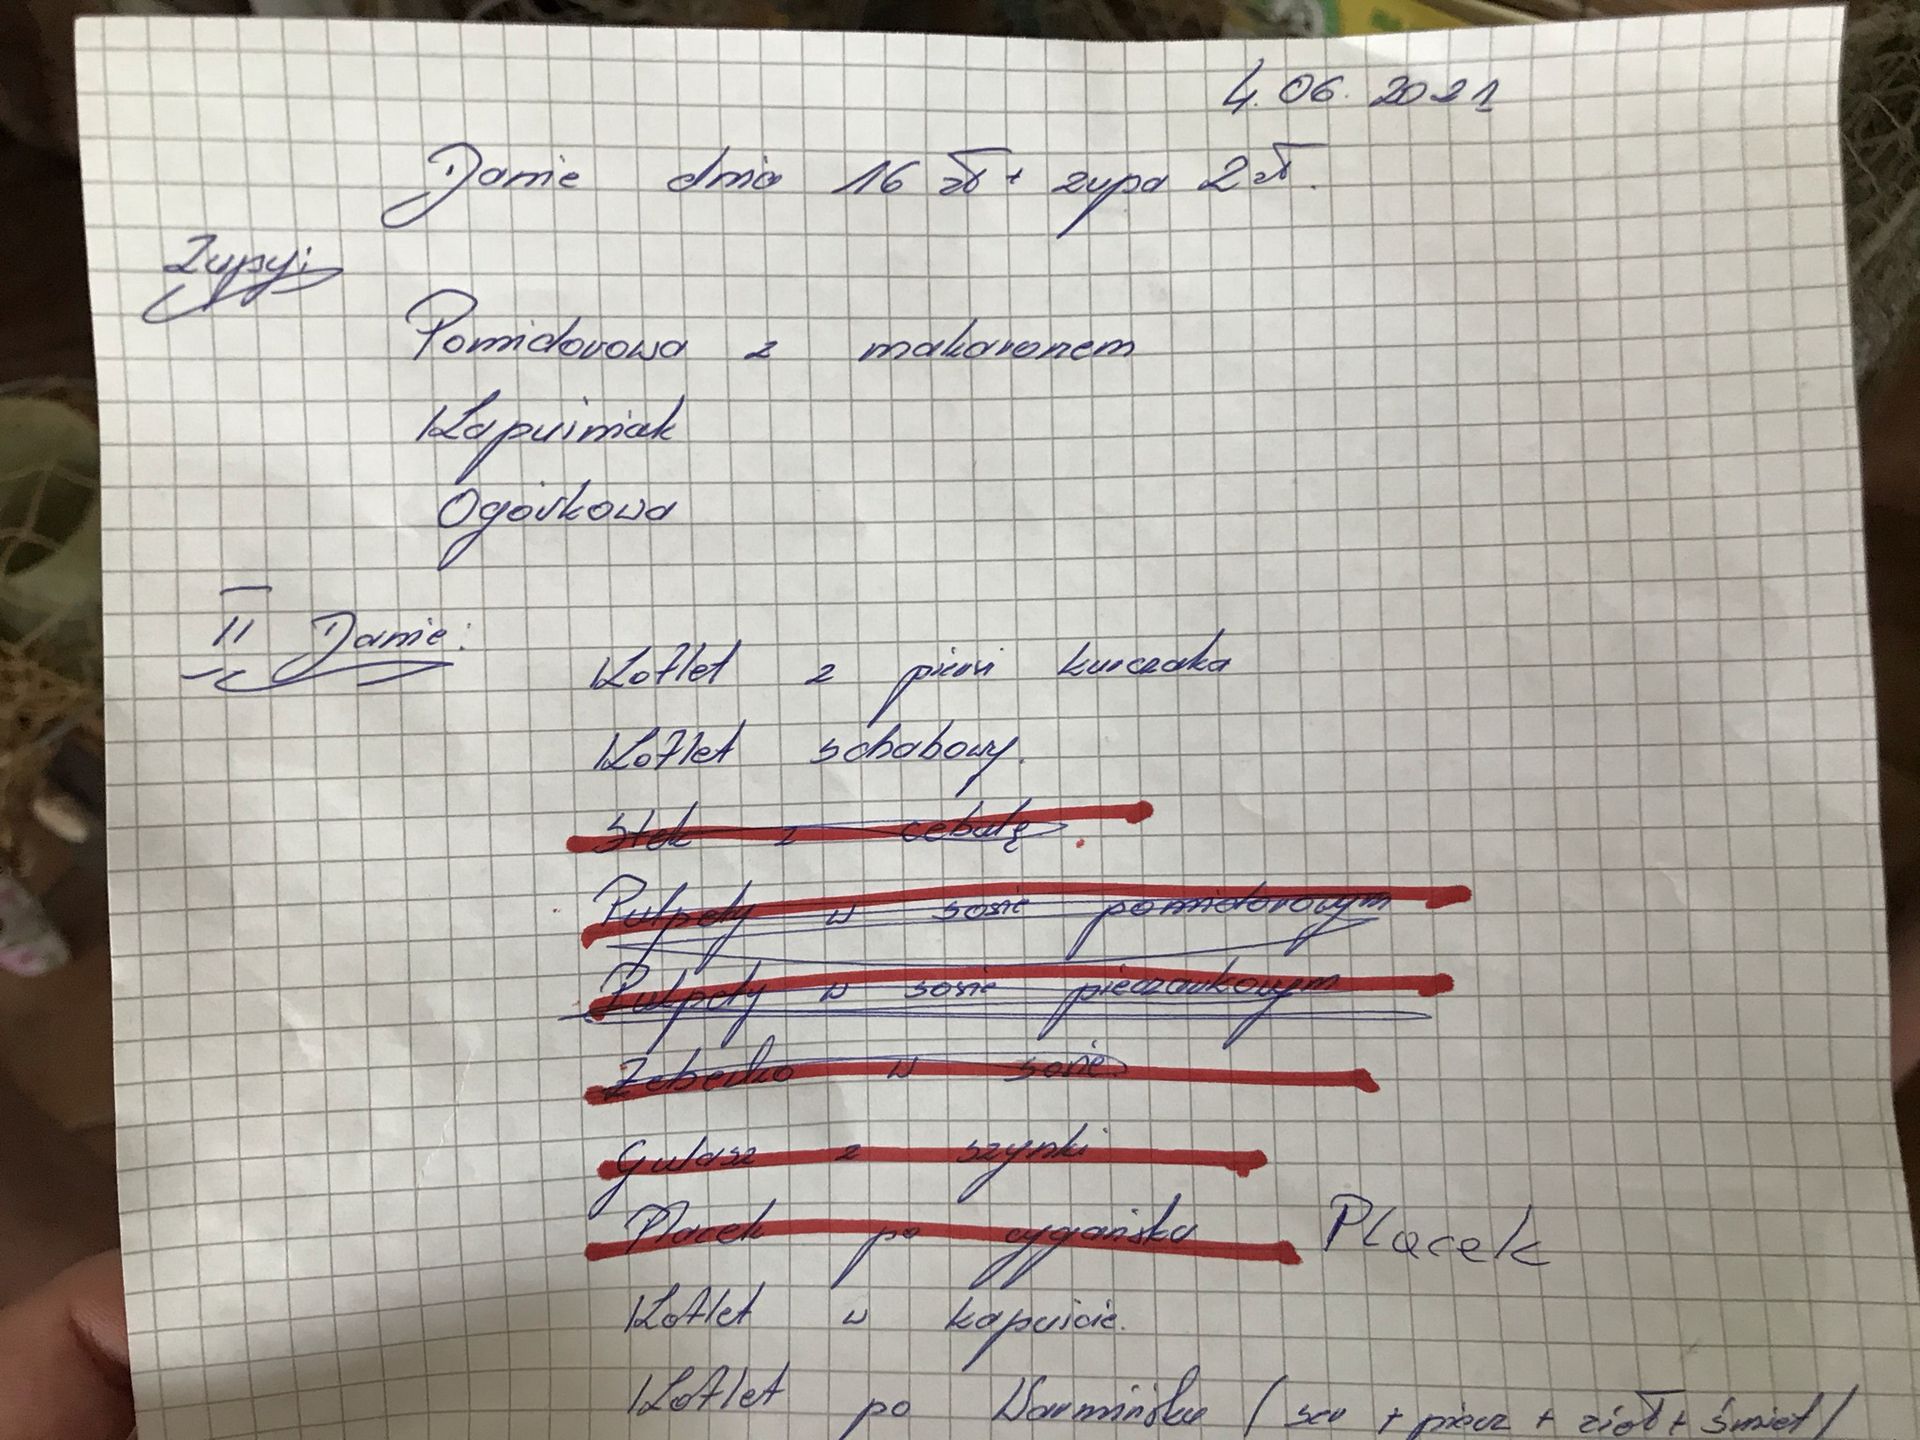 4.06.2021
Danie dnia 16 zł + zupa 2 zł.
Zupy:
Pomidorowa z makaronem
Kapuśniak
Ogórkowa
II Danie:
Kotlet z piersi kurczaka
Kotlet schabowy.
Stek z cebulą
Pulpety w sosie pomidorowym
Pulpety w sosie pieczarkowym
Żeberko w sosie
Gulasz z szynki
Placek po cygańsku Placek
Kotlet w kapuście.
Kotlet po Warmińsku (ser + piecz + zioł + śmiet)